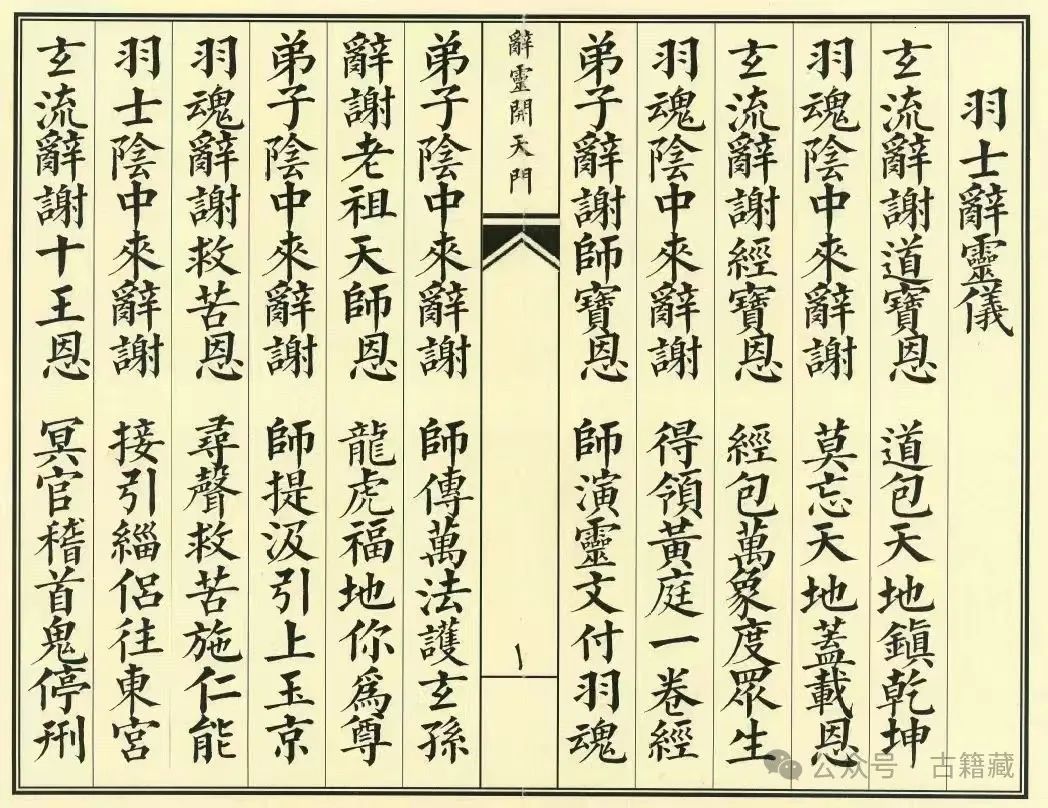 羽士辭靈儀
玄流辭謝道寶恩 道包天地鎮乾坤
羽魂陰中來辭謝 莫忘天地蓋載恩
玄流辭謝經寶恩 經包萬象度眾生
羽魂陰中來辭謝 得領黃庭一卷經
弟子辭謝師寶恩 師演靈文付羽魂
辭靈開天門
一
弟子陰中來辭謝 師傳萬法護玄孫
辭謝老祖天師恩 龍虎福地你為尊
弟子陰中來辭謝 師提汲引上玉京
羽魂辭謝救苦恩 尋聲救苦施仁能
羽士陰中來辭謝 接引緇侶往東宮
玄流辭謝十王恩 冥官稽首鬼停刑
公众号 古籍藏